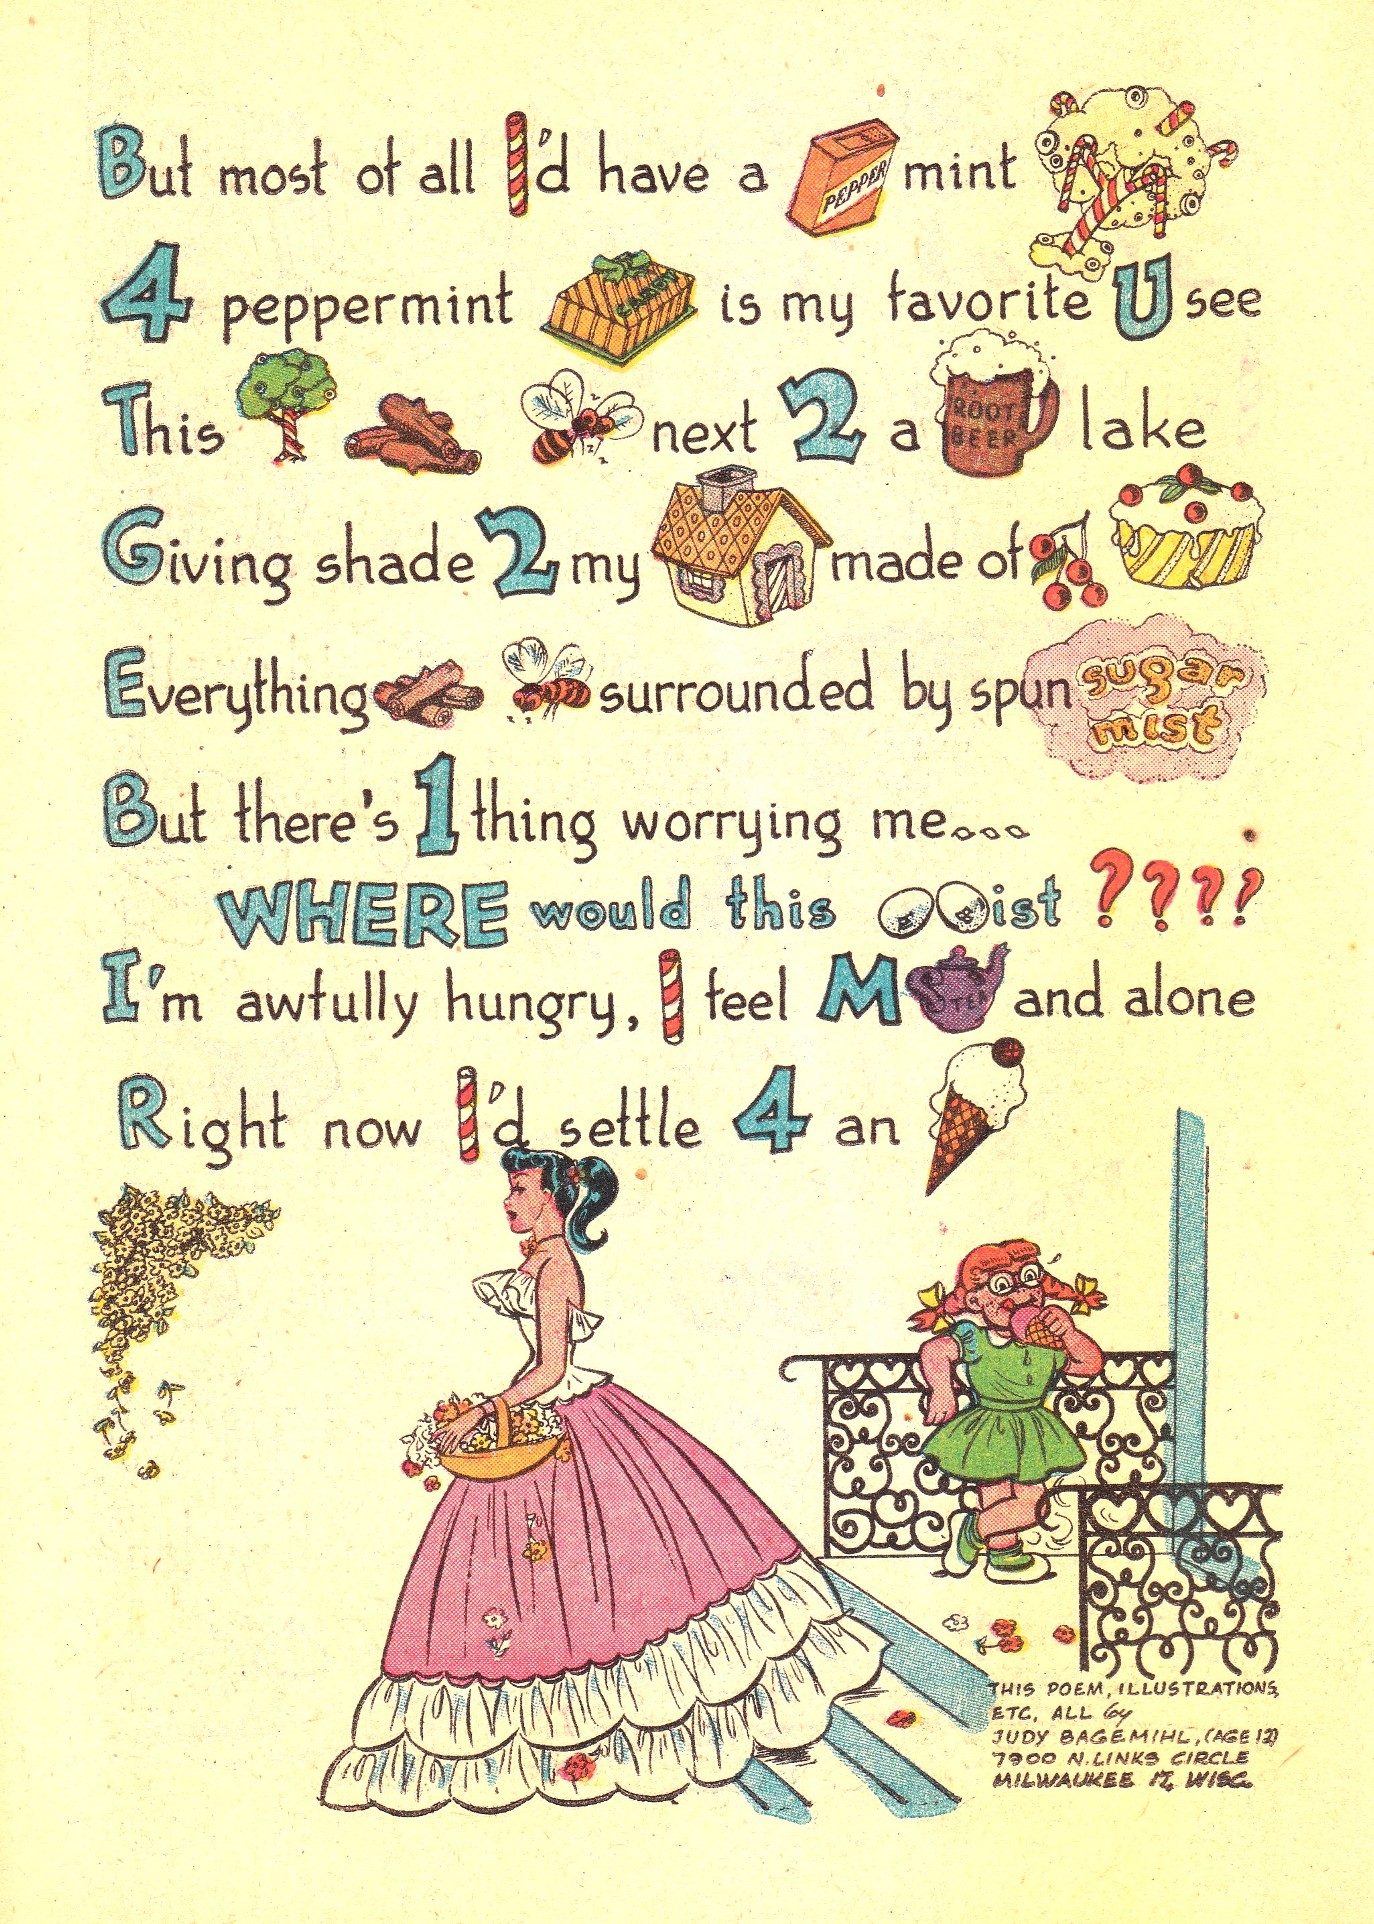 But most of all I'd have a PEPPER mint
4 peppermint CANDY is my favorite U see
This next 2 a ROOT BEER lake
Giving shade 2 my made of
Everything surrounded by spun sugar mist
But there's 1 thing worrying me...
WHERE would this ist ????
I'm awfully hungry, I feel M STEA and alone
Right now I'd settle 4 an
THIS POEM, ILLUSTRATIONS,
ETC. ALL by
JUDY BAGEMIHL, (AGE 12)
7900 N. LINKS CIRCLE
MILWAUKEE 17, WISC.